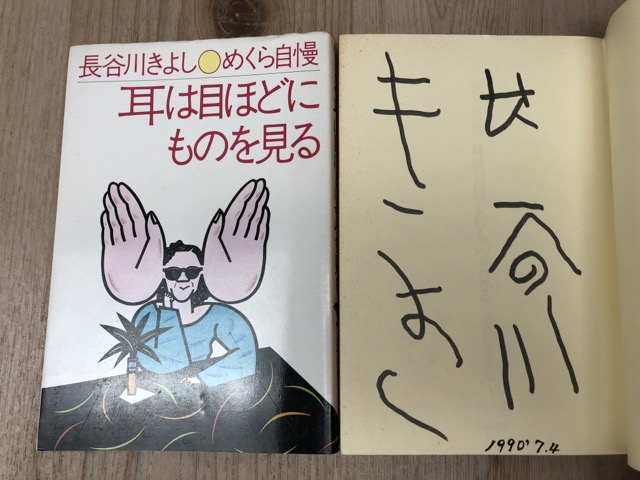 長谷川きよし●めくら自慢
耳は目ほどに
ものを見る
長谷川
きよし
1990' 7.4